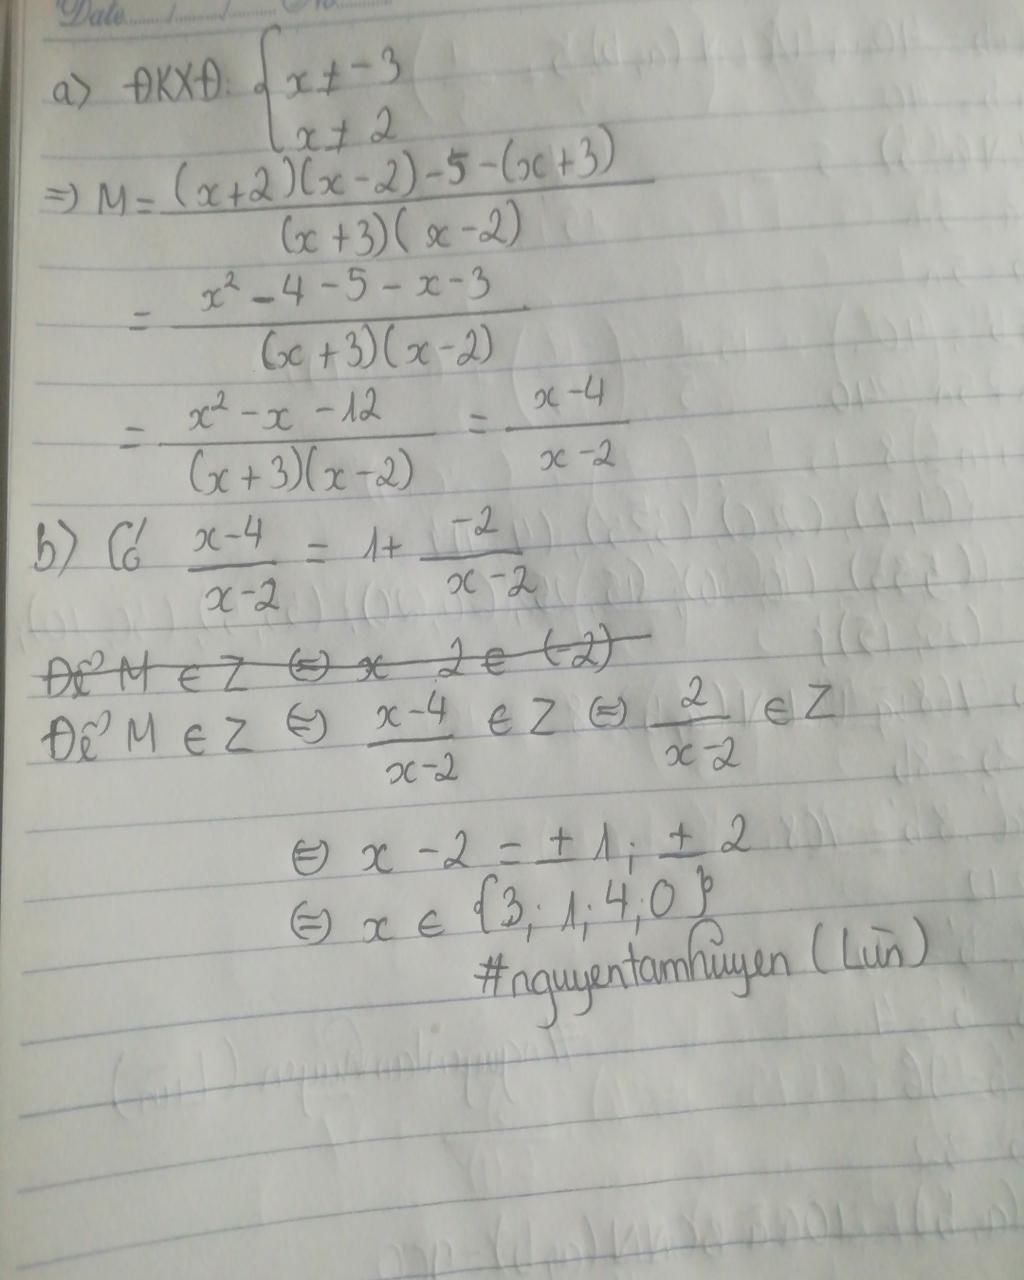 Date
a) ĐKXĐ: { x ≠ -3
x ≠ 2
=> M = (x+2)(x-2)-5-(x+3) / (x+3)(x-2)
= x² - 4 - 5 - x - 3 / (x+3)(x-2)
= x² - x - 12 / (x+3)(x-2) = x-4 / x-2
b) Có x-4 / x-2 = 1 + -2 / x-2
Để M ∈ Z <=> x 2 ∈ (-2)
Để M ∈ Z <=> x-4 / x-2 ∈ Z <=> 2 / x-2 ∈ Z
<=> x - 2 = ± 1; ± 2
<=> x ∈ {3; 1; 4; 0}
#nguyentamhuyen (Lùn)